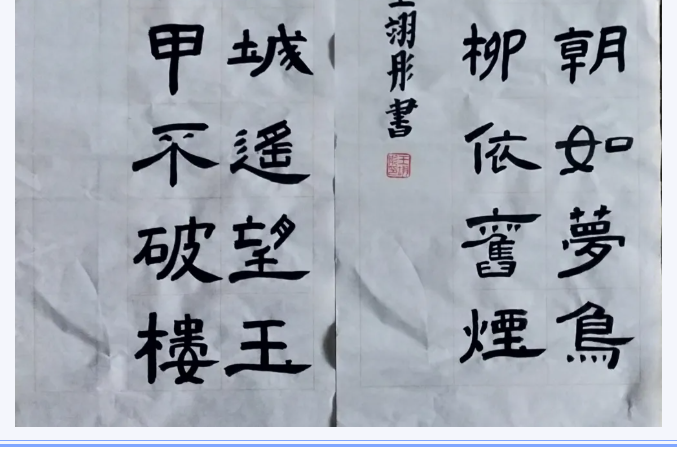 朝如夢鳥
柳依舊煙
翊彤書
城遙望玉
甲不破樓